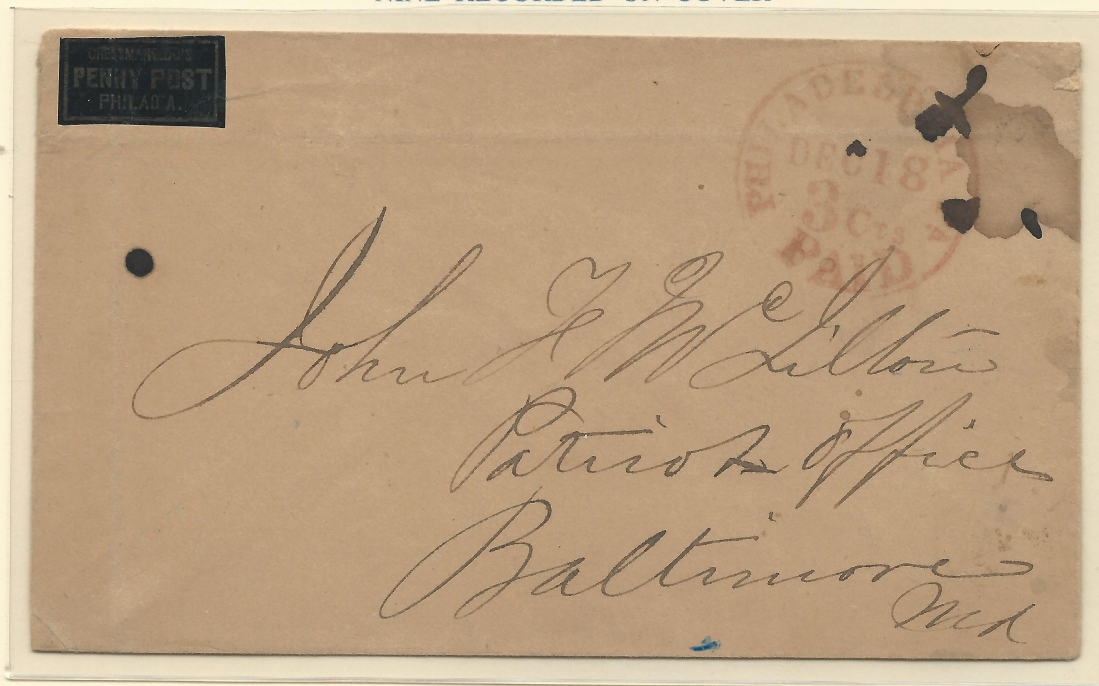 NINE RECORDED ON COVER
PENNY POST
PHILAD'A.
PHILADELPHIA PA
DEC 18
3 Cts
PAID
John F McJilton
Patriot Office
Baltimore
Md